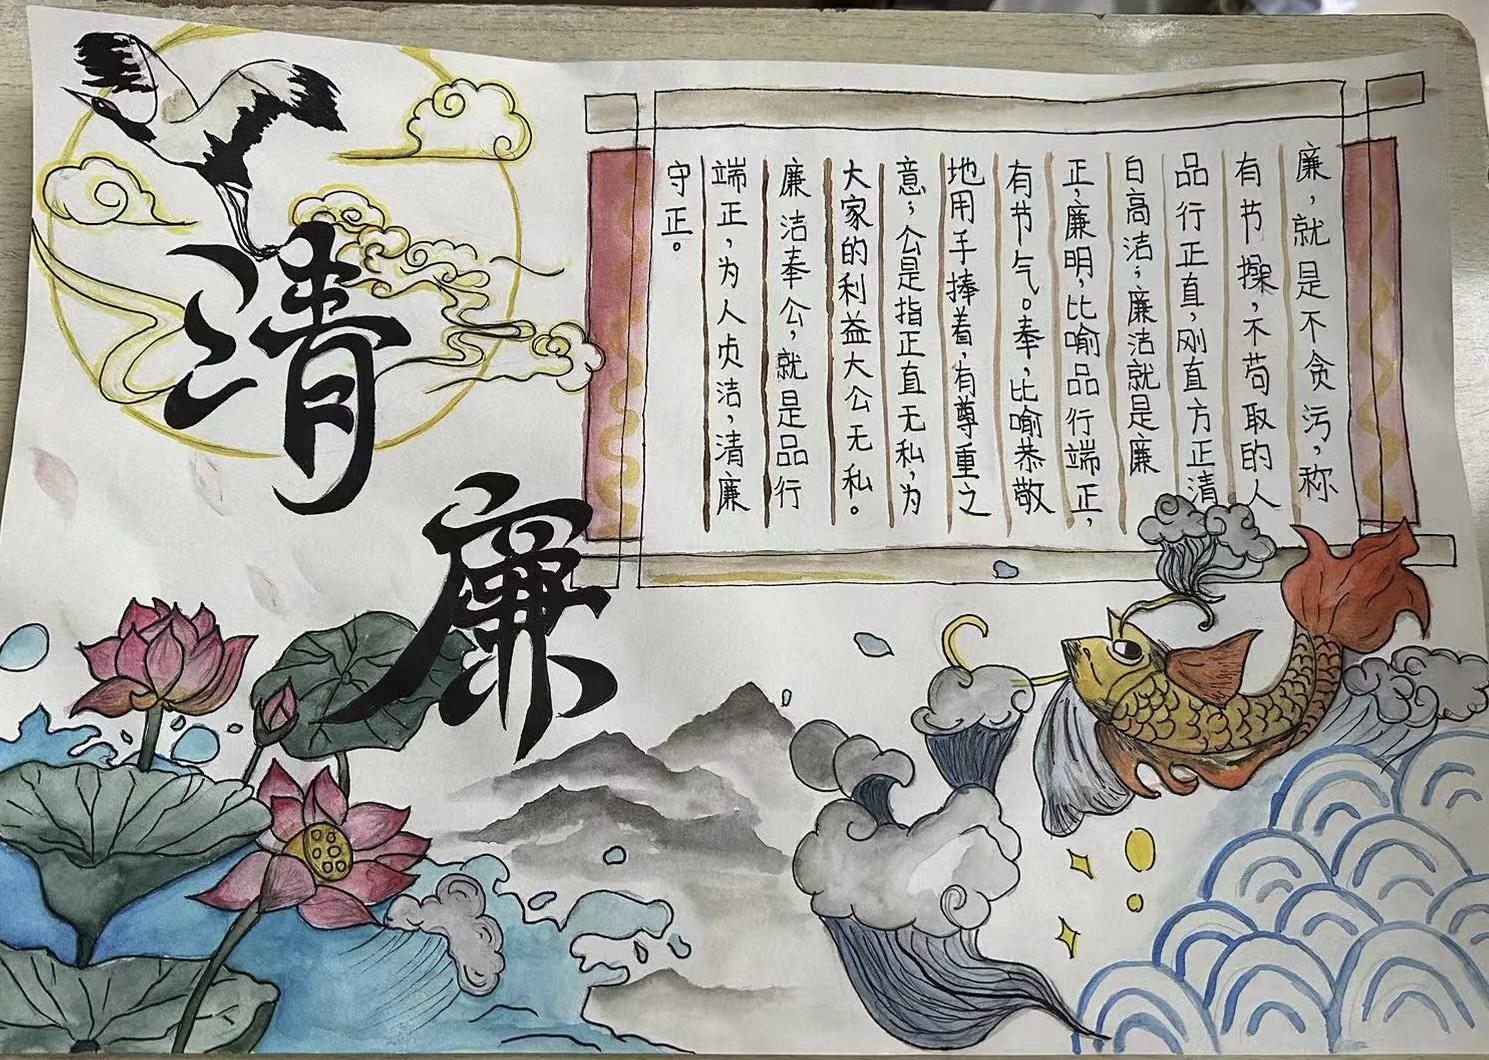 清
廉
廉，就是不贪污，称
有节操，不苟取的人
品行正直，刚直方正清
白高洁；廉洁就是廉
正；廉明，比喻品行端正，
有节气。奉，比喻恭敬
地用手捧着，有尊重之
意；公是指正直无私，为
大家的利益大公无私。
廉洁奉公，就是品行
端正，为人贞洁，清廉
守正。